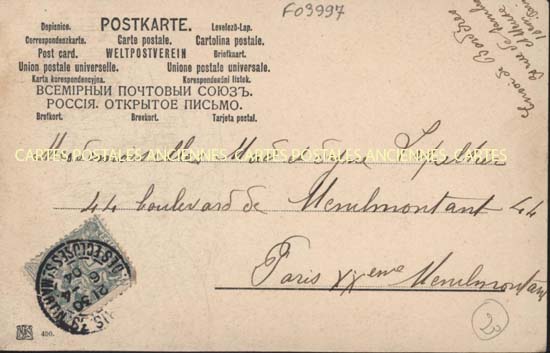 F09997
Dopisnice. POSTKARTE. Levelező-Lap.
Correspondenzkarte. Carte postale. Cartolina postale.
Post card. WELTPOSTVEREIN Briefkaart.
Union postale universelle. Unione postale universale.
Karta korespondencyjna. Korespondenčni listek.
ВСЕМІРНЫЙ ПОЧТОВЫЙ СОЮЗЪ.
РОССІЯ. ОТКРЫТОЕ ПИСЬМО.
Brefkort. Brevkort. Tarjeta postal.
Envoi de
rue
Mademoiselle
CARTES POSTALES ANCIENNES CARTES POSTALES ANCIENNES CARTES
44 boulevard de Menilmontant 44
Paris XXeme Menilmontant
450.
20